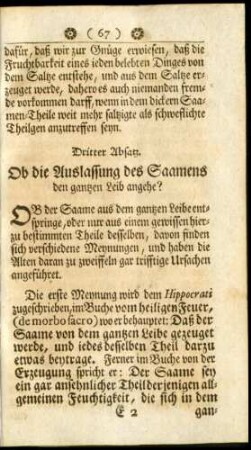 ( 67 )
dafür, daß wir zur Gnüge erwiesen, daß die
Fruchtbarkeit eines jeden belebten Dinges von
dem Saltze entstehe, und aus dem Saltze er-
zeuget werde, dahero es auch niemanden frem-
de vorkommen darff, wenn in dem dickern Saa-
men-Theile weit mehr saltzigte als schweflichte
Theilgen anzutreffen seyn.
Dritter Absatz.
Ob die Auslassung des Saamens
den gantzen Leib angehe?
OB der Saame aus dem gantzen Leibe ent-
springe, oder nur aus einem gewissen hier-
zu bestimmten Theile desselben, davon finden
sich verschiedene Meynungen, und haben die
Alten daran zu zweiffeln gar trifftige Ursachen
angeführet.
Die erste Meynung wird dem Hippocrati
zugeschrieben, im Buche vom heiligen Feuer,
(de morbo sacro) wo er behauptet: Daß der
Saame von dem gantzen Leibe gezeuget
werde, und jedes desselben Theil darzu
etwas beytrage. Ferner im Buche von der
Erzeugung spricht er: Der Saame sey
ein gar ansehnlicher Theil derjenigen all-
gemeinen Feuchtigkeit, die sich in dem
E 2 gan-